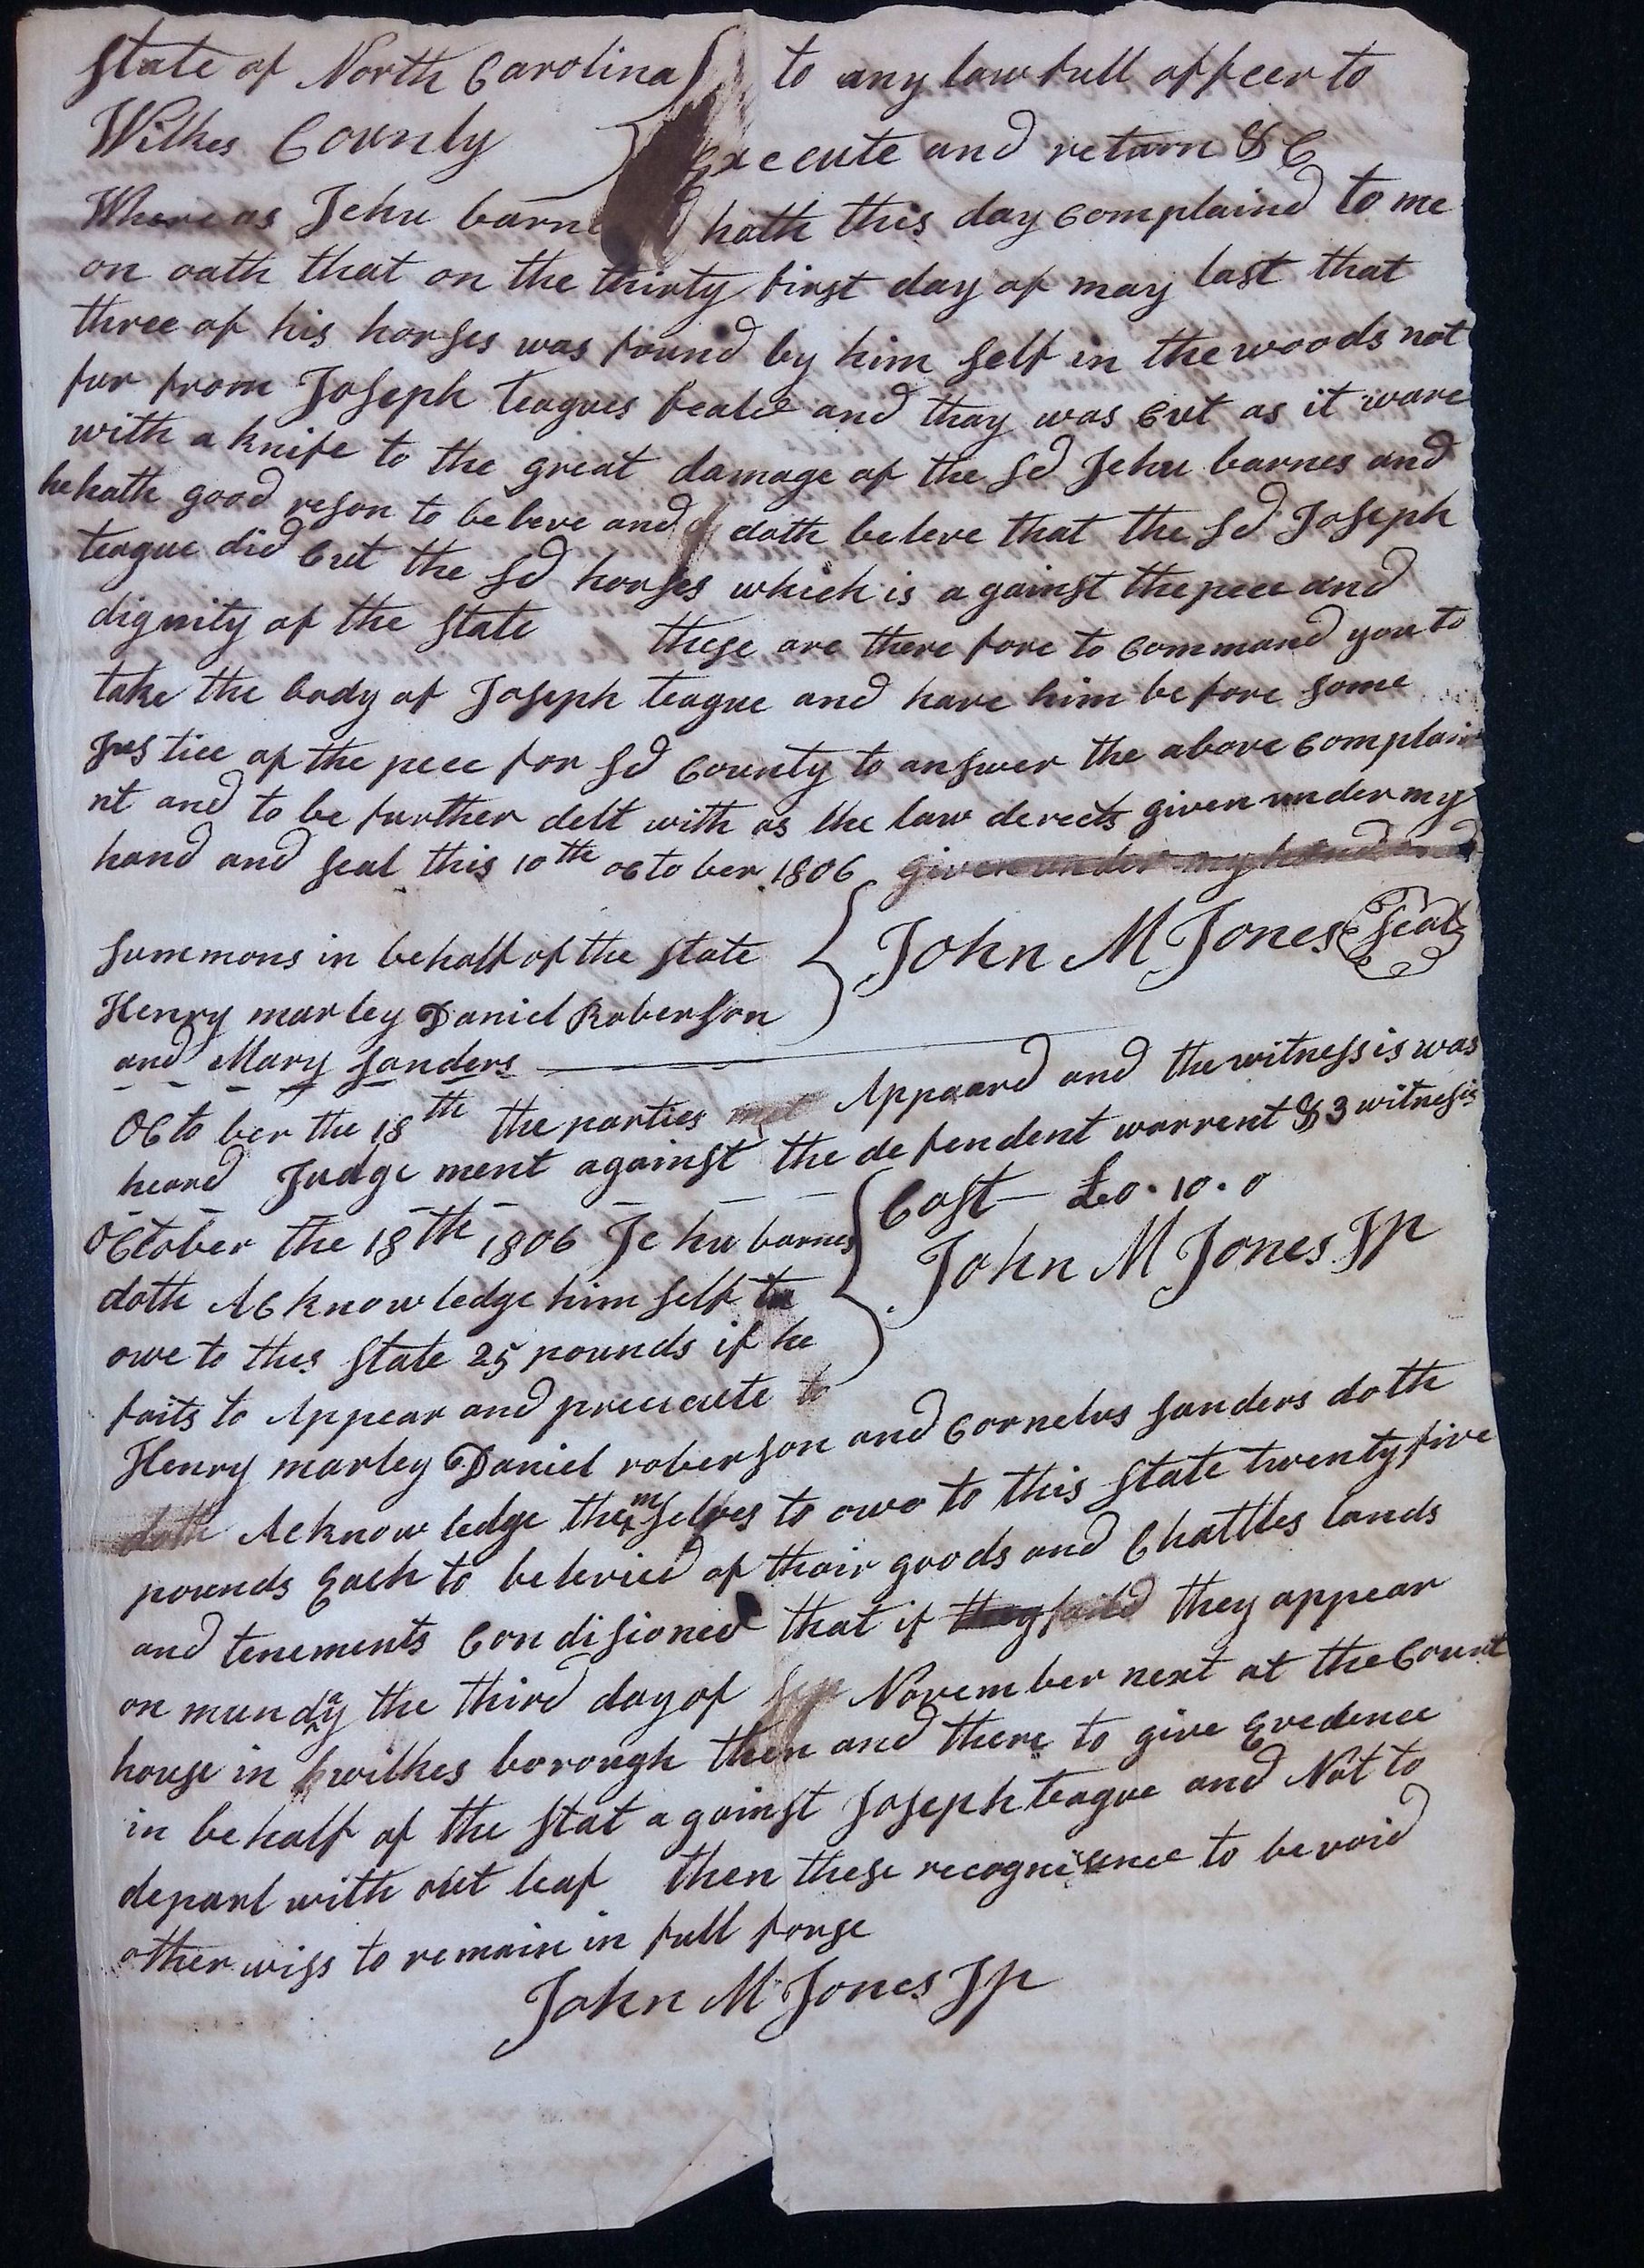 State of North Carolina to any lawfull offeer to
Wilkes County Execute and return & C
Whereas Jehu barnes hath this day complained to me
on oath that on the thirty first day of may last that
three of his horses was found by him self in the woods not
fur from Joseph teagues feald and thay was Cut as it ware
with a knife to the great damage of the sd Jehu barnes and
he hath good reson to beleve and doth beleve that the sd Joseph
teague did Cut the sd horses which is a gainst the pece and
dignity of the state these are there fore to Command you to
take the body of Joseph teague and have him be fore some
Jus tice of the pece for sd County to answer the above Complain
nt and to be further delt with as the law derects given under my
hand and seal this 10th octo ber 1806 given under my hand and
John M Jones seal
summons in behalf of the state
Henry marley Daniel Roberson
and Mary sanders
Octo ber the 18th the parties met Appaard and the witnessis was
heard Judge ment against the defendent warrent & 3 witnesis
Cost £0.10.0
John M Jones JP
October the 18th 1806 Jehu barnes
doth Acknow ledge him self to
owe to this state 25 pounds if he
faits to Appear and precicute to
Henry marley Daniel roberson and Cornelus sanders doth
doth Acknow ledge themselves to owe to this state twenty five
pounds Each to be levied of thair goods and Chattles lands
and tenements Condisioned that if they faild they appear
on munday the third day of sep November next at the Court
house in wilkes borough then and there to give Evedence
in be half of the stat a gainst Joseph teague and Not to
depart with out leaf then these recognisence to be void
other wiss to remain in full forse
John M Jones JP